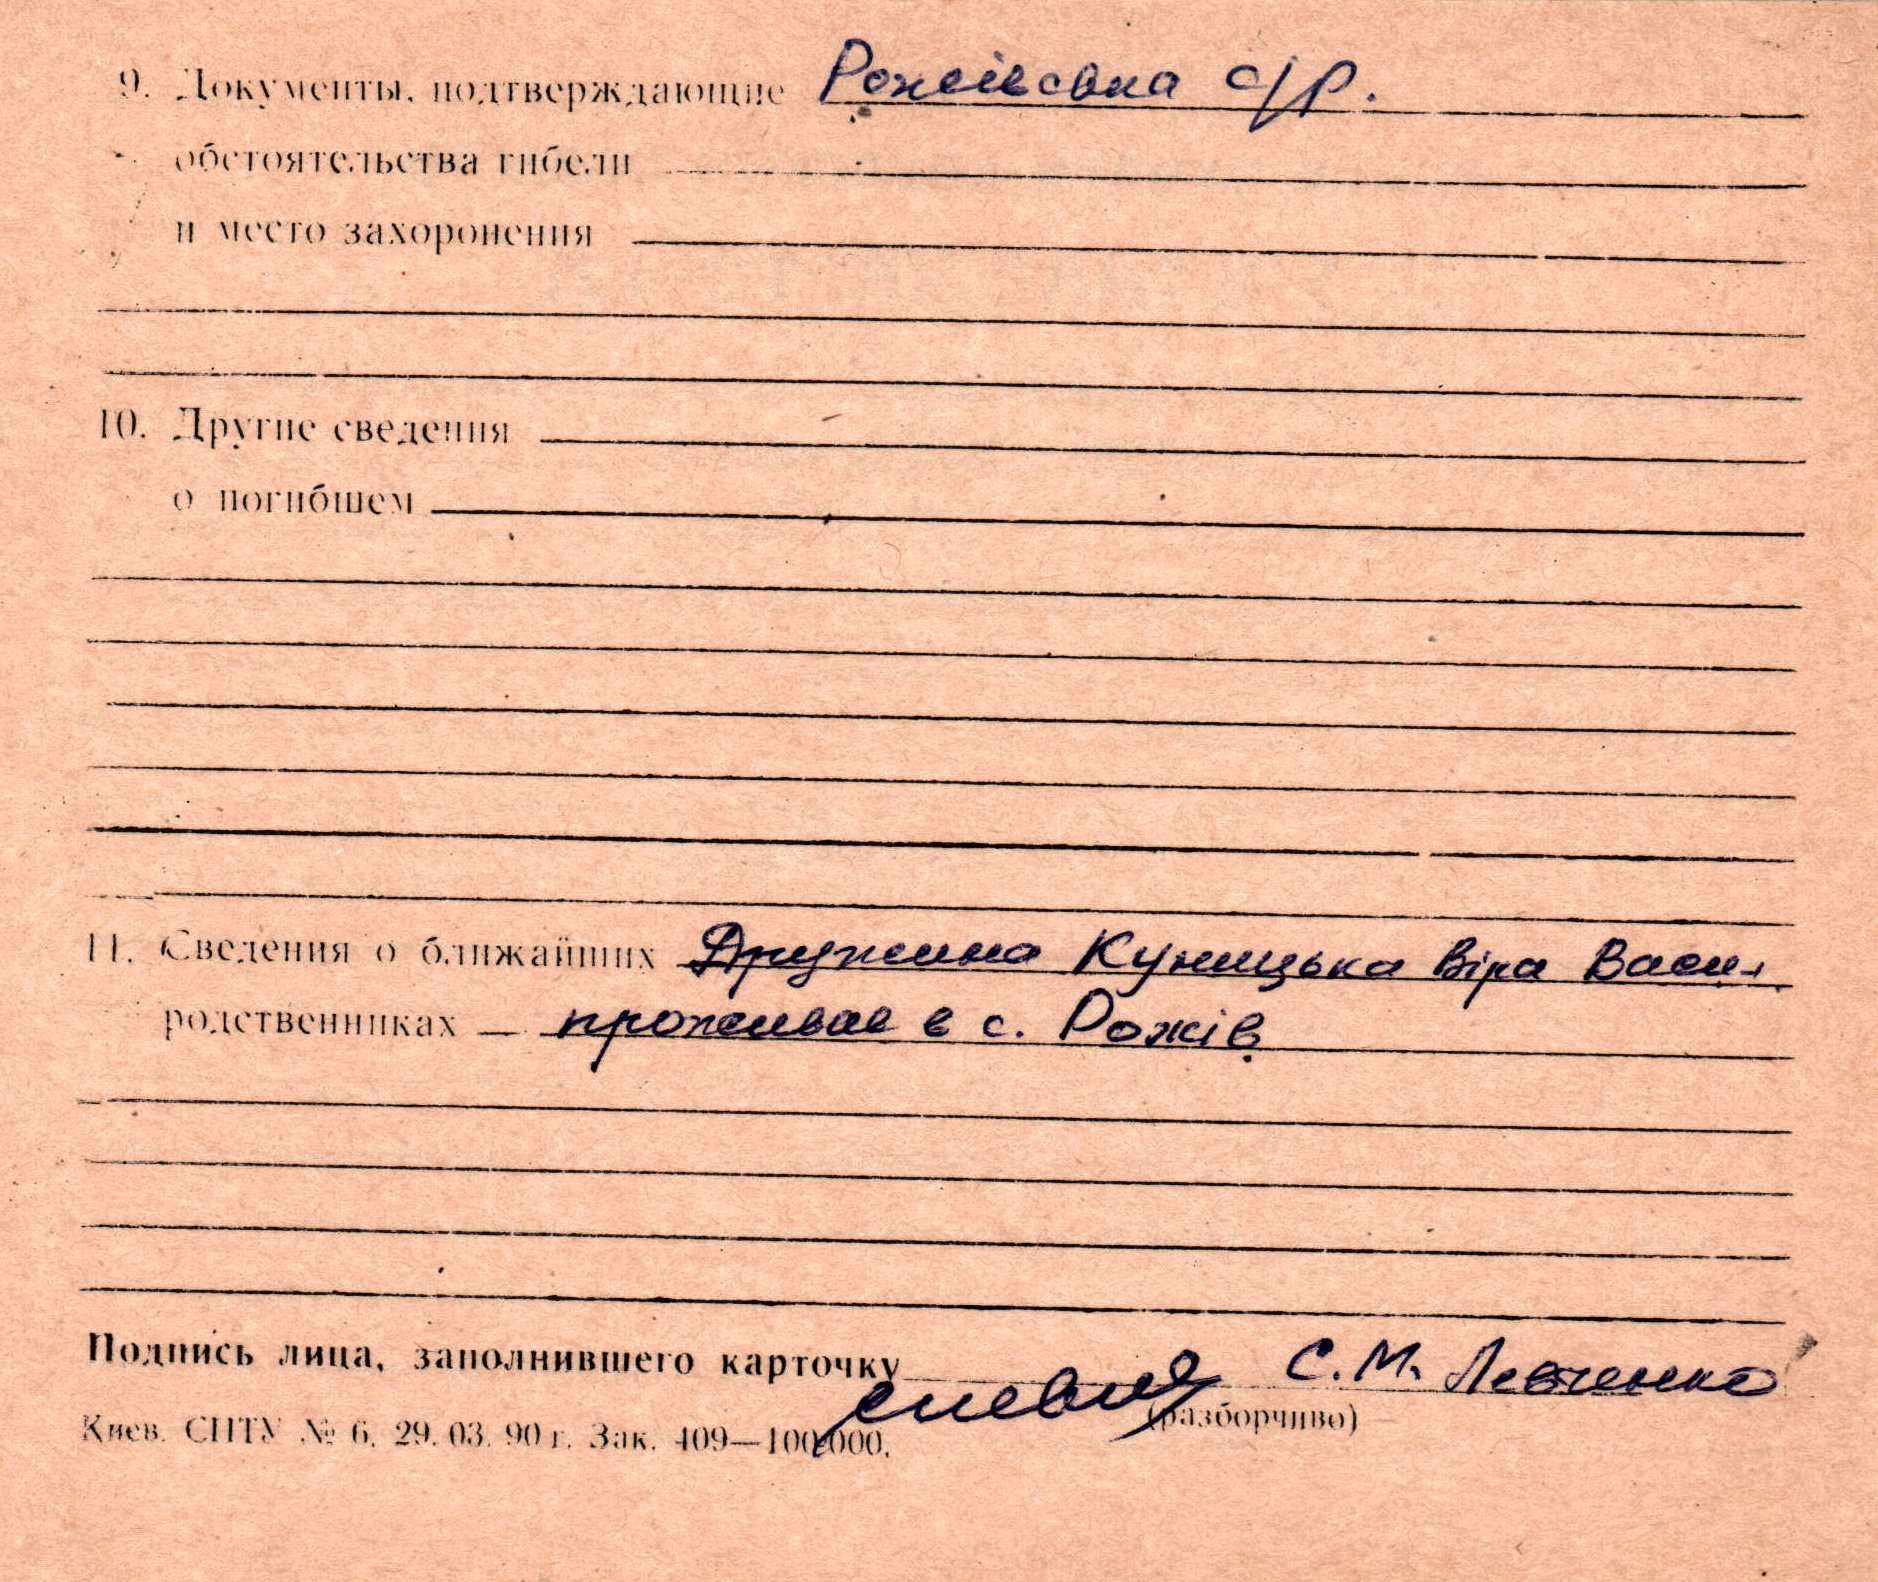 9. Документы, подтверждающие Рожівська с/р.
обстоятельства гибели
и место захоронения
10. Другие сведения
о погибшем
11. Сведения о ближайших Дружина Куницька Віра Васи-
родственниках — проживає в с. Рожів
Подпись лица, заполнившего карточку С. М. Левченко
(разборчиво)
Киев. СПТУ № 6. 29. 03. 90 г. Зак. 409—100.000.